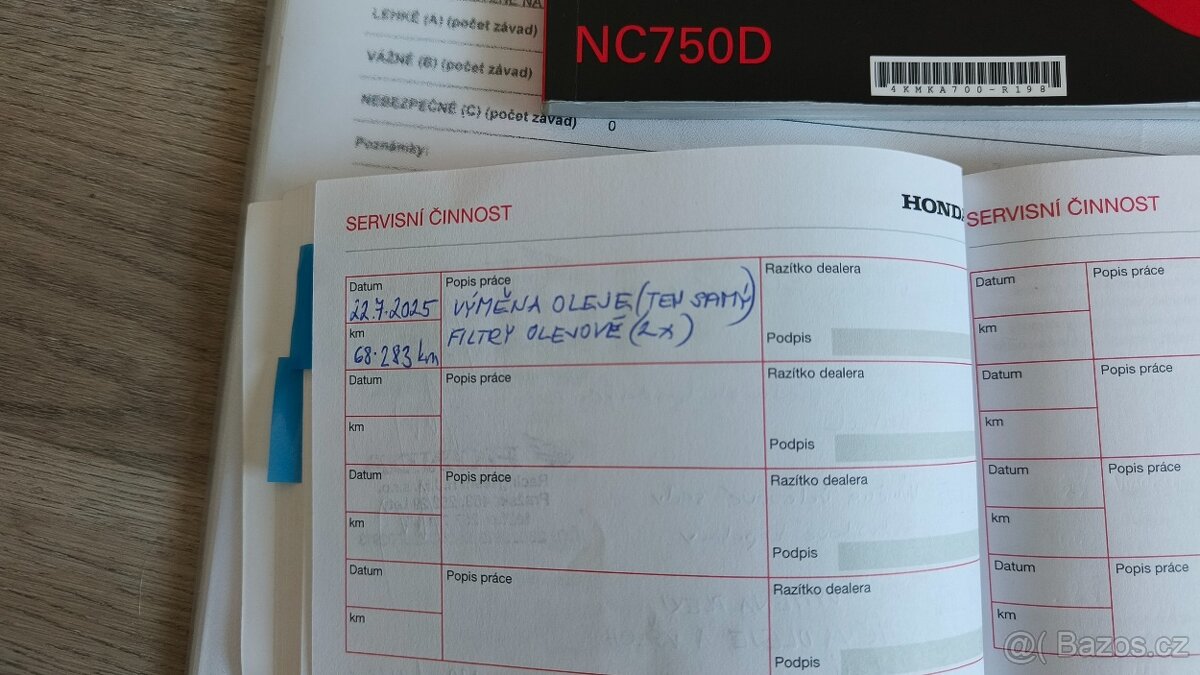 LEHKÉ (A) (počet závad)
VÁŽNÉ (B) (počet závad)
NEBEZPEČNÉ (C) (počet závad) 0
Poznámky:
NC750D
4KMKA700-R198
SERVISNÍ ČINNOST
HONDA
Datum
22.7.2025
km
68.283 km
Popis práce
VÝMĚNA OLEJE (TEN SAMÝ)
FILTRY OLEJOVÉ (2x)
Razítko dealera
Podpis
Datum
km
Popis práce
Razítko dealera
Podpis
Datum
km
Popis práce
Razítko dealera
Podpis
Datum
km
Popis práce
Razítko dealera
Podpis
SERVISNÍ ČINNOST
Datum
km
Popis práce
Datum
km
Popis práce
Datum
km
Popis práce
Datum
km
Popis práce
@( Bazos.cz